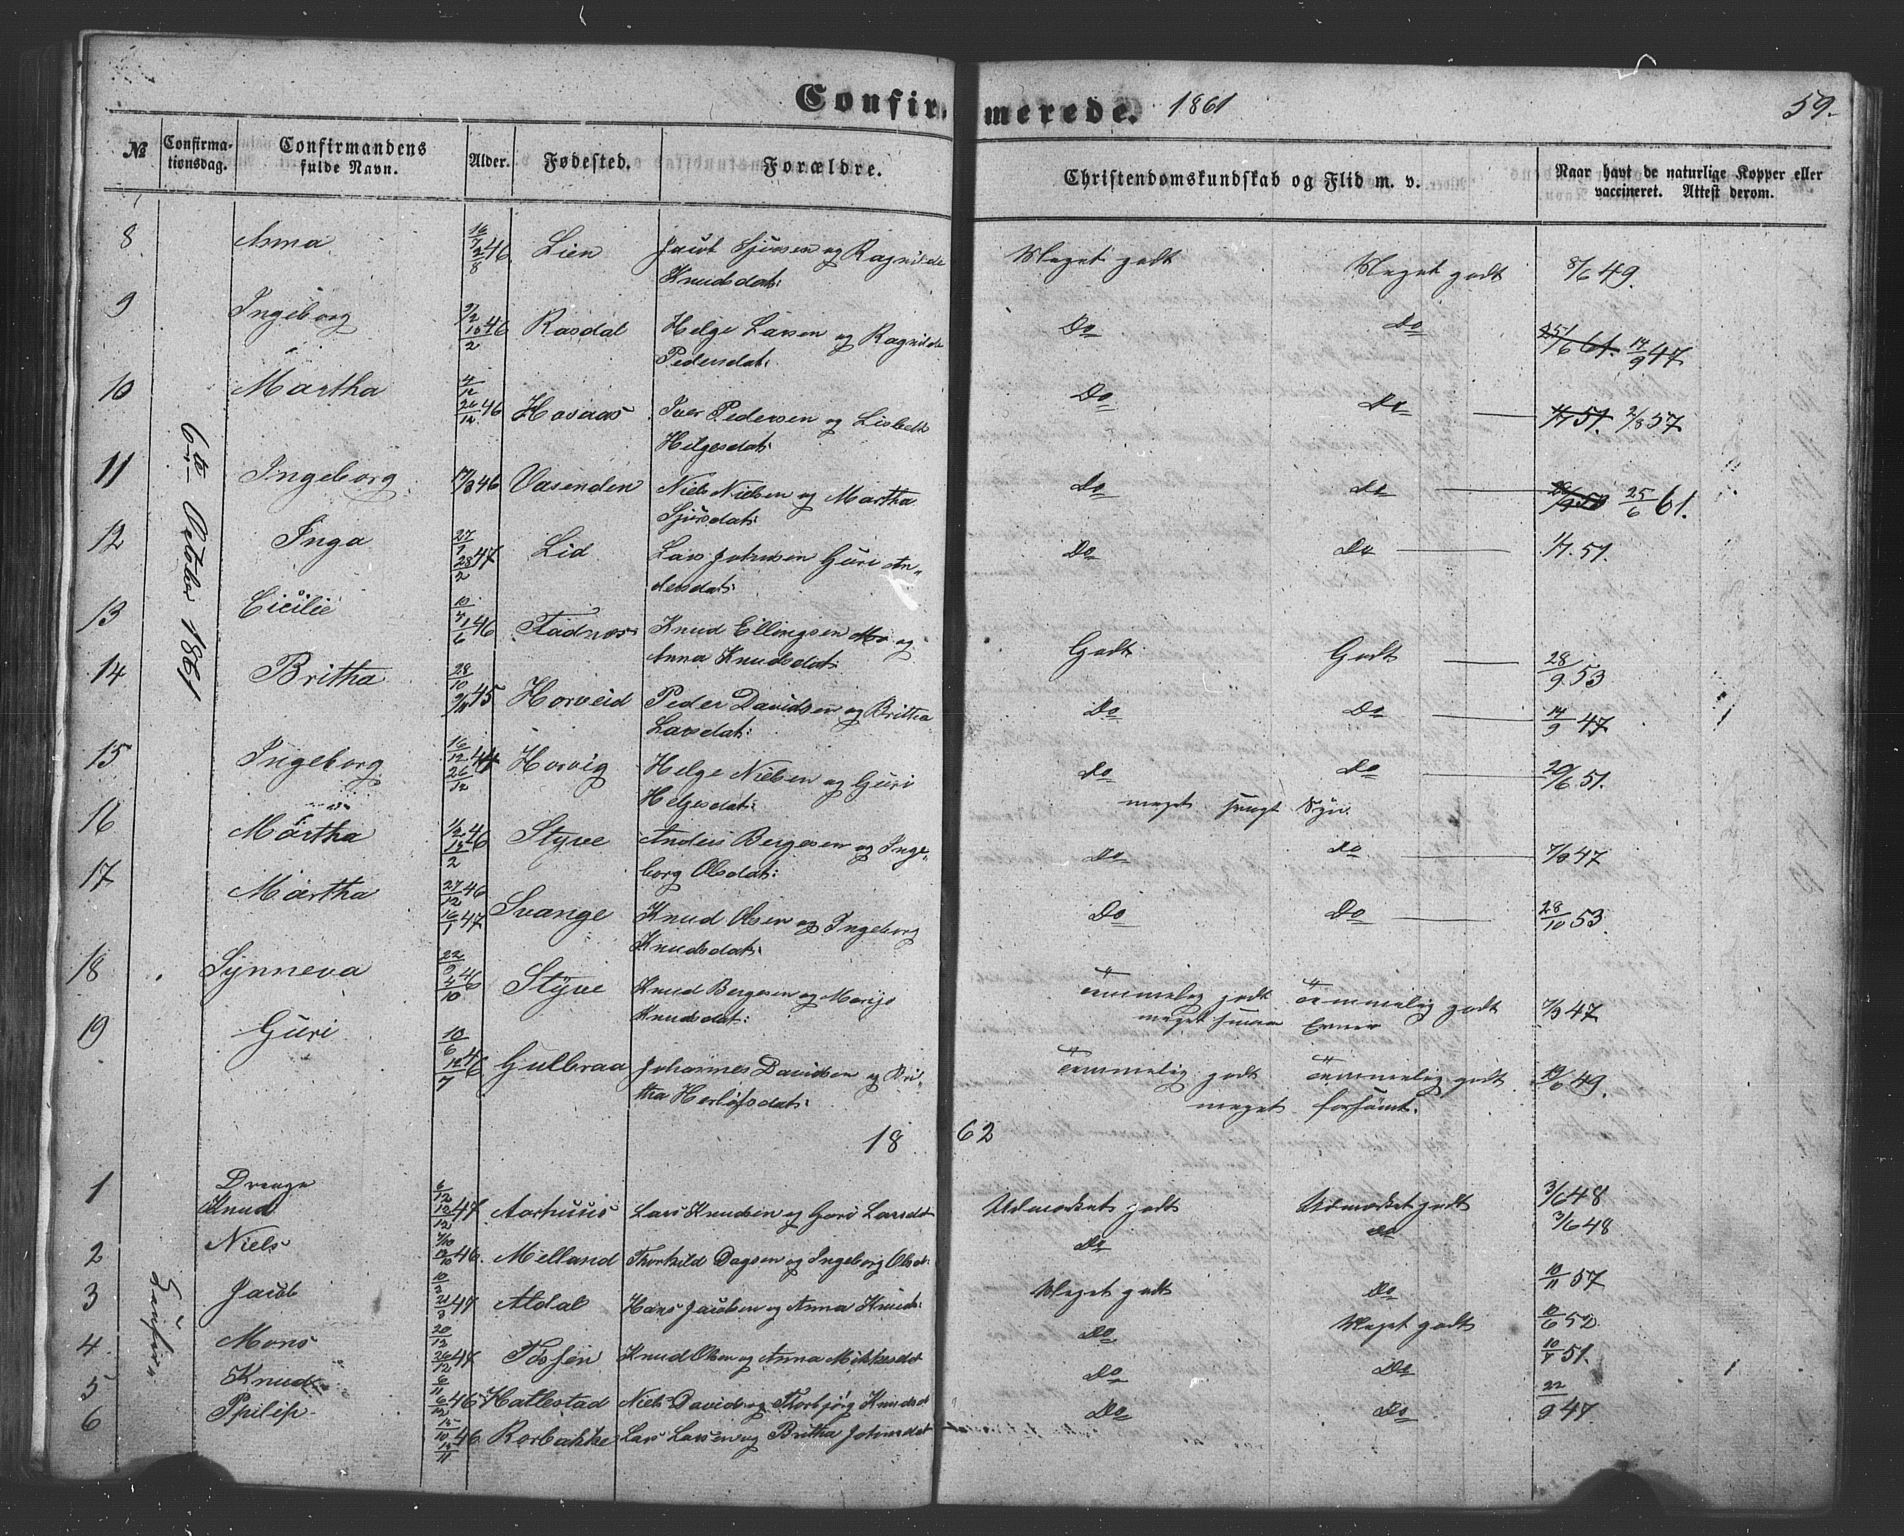 Confirmerede. 1861 59.
№ Confirmationsdag. Confirmandens fulde Navn. Alder. Fødested. Forældre. Christendomskundskab og Flid m. v. Naar havt de naturlige Kopper eller vaccineret. Attest derom.
6te October 1861
8 Anna 16/7 2/8 46 Lien Jacob Sjursen og Ragnilde Meget godt Meget godt 8/6 49.
Knudsdat:
9 Ingeborg 9/2 46 Rasdal Helge Larsen og Ragnilde Do Do 25/6 61. 14/9 47
Pedersdat:
10 Martha 4/12 26/12 46 Hovaas Iver Pedersen og Lisbeth Do Do 1/7 51. 2/8 57
Helgesdat:
11 Ingeborg 46 Vasenden Niels Nielsen og Martha Do Do 25/6 61.
Sjursdat:
12 Inga 27/1 28/2 47 Lid Lars Johnsen Guri An- Do Do 1/7. 51.
dersdat:
13 Cicilie 46 Fadnæs Knud Ellingsen Mo og Godt Godt 28/9 53
Anna Knudsdat:
14 Britha 28/10 45 Horveid Peder Davidsen og Britha Do Do 14/9 47
Larsdat:
15 Ingeborg 16/12 26/12 44 Horvig Helge Nielsen og Guri Do Do 20/6 51.
Helgesdat: meget svagt Syn.
16 Martha 1/2 15/2 46 Styve Anders Bergesen og Inge- Do Do 7/9 47
borg Olsdat:
17 Martha 27/12 46 16/1 47 Svange Knud Olsen og Ingeborg Do Do 28/10 53.
Knudsdat:
18 Synneva 22/9 4/10 46 Styve Knud Bergesen og Marijo Temmelig godt Temmelig godt 7/9 47
Knudsdat: meget smaa Evner
19 Guri 10/6 12/7 46 Gulbraa Johannes Davidsen og Bri- Temmelig godt Temmelig godt 49.
tha Herlofsdat: meget forsømt.
1862
Drenge
1 Knud 6/12 12/12 47 Aarhuus Lars Knudsen og Guri Larsdt Udmærket godt Udmærket godt 3/6 48
2 Niels 46. Melland Thorkild Dagsen og Ingeborg Olsd: Do Do 3/6 48
3 Jacob 21/3 47 Aldal Hans Jacobsen og Anna Knuds: Meget godt Do 10/11 57
4 Mons 20/12 26/12 47 Fossen Knud Olsen og Anna Mikkelsdt Do Meget godt 10/6 52
5 Knud 6/11 6/12 46 Hatlestad Niels David og Thorbjörg Knudsd Do Do 51.
6 Philip 15/10 15/11 46 Rorbakke Lars Larsen og Britha Johnsdt Do Do 22/9 47.